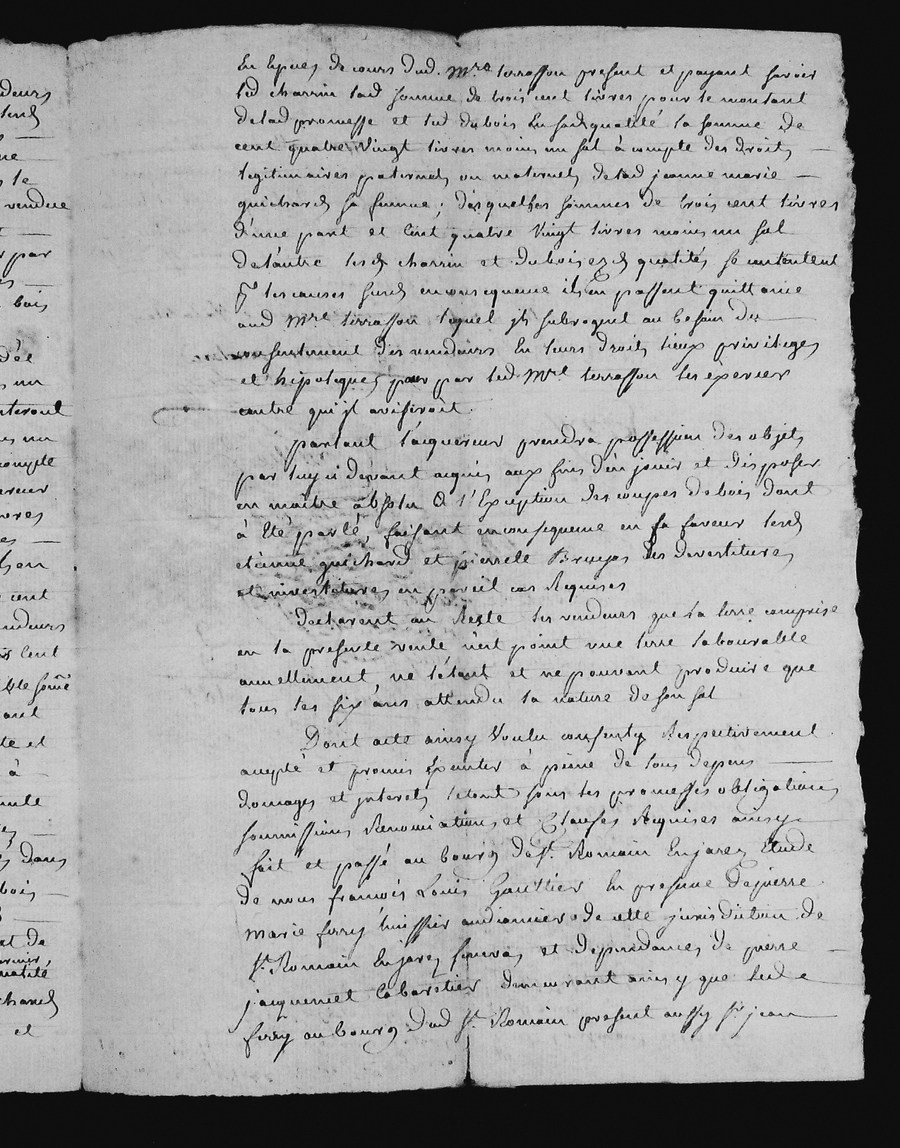 deurs
ne
s le
vendue
par
bois
dée
s un
nteront
es un
compte
en
cent
ndeurs
lent
ant
te et
à
dans
bois
et de
et
En Espèces de cours dud. Mre terrasson présent et payant savoir
led charrin lad somme de trois cent livres pour le montant
de lad promesse et led dubois En sad qualité la somme de
cent quatre Vingt livres moins un sol à compte des droits
légitimaires paternels ou maternels de lad jeanne marie
guichard sa femme; desquelles sommes de trois cent livres
d'une part et Cent quatre Vingt livres moins un sol
de l'autre lesd charrin et dubois ezd qualités se contentent
pr les causes susd en conséquence ils en passent quittance
aud Mre terrasson lequel ils subrogent au besoin du
consentement des vendeurs En leurs droits lieux privileges
et hipoteques pour par led. Mre terrasson les éxercer
contre qui jl aviseroit.
partant l'acquereur prendra possession des objets
par luy ci devant acquis aux fins d'en jouir et disposer
en maitre absolu à l'Exception des coupes de bois dont
à Eté parlé, faisant en conséquence en sa faveur lesd
etienne guichard et pierrette Bruyas les devestitures
et investitures en pareil cas Requises
Declarent au Reste les vendeurs que la terre comprise
en la presente vente n'est point une terre labourable
annuellement, ne l'étant et ne pouvant produire que
tous les six ans attendu la nature de son sol
Dont acte ainsy Voulu consenty Respectivement
accepté et promis Exécuter à peine de tous depens
domages et jnterets le tout sous les promesses obligations
soumissions Renonciations et Clauses Requises ainsy
fait et passé au bourg de St. Romain En jarez Etude
de nous françois Louis Gaultier En presence de pierre
Marie ferry huissier audiancier de cette jurisdiction de
St. Romain En jarez fourvas et dependances de pierre
jacquemet Cabaretier demeurant ainsy que led
ferry au bourg dud St. Romain présent aussy Sr. jean